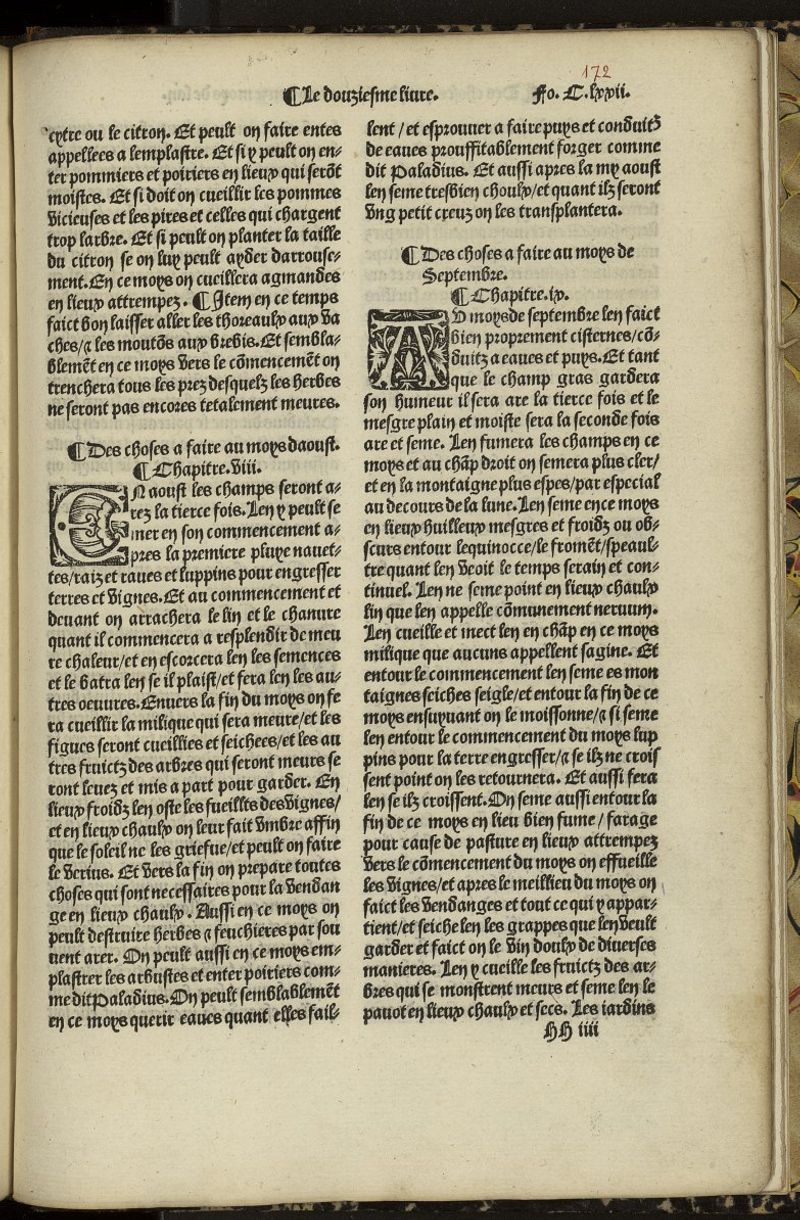 172
¶ Le douziesme liure. Fo. C.lxxii.
cytre ou le citron. Et peult on faire entes
appellees a lemplastre. Et si y peult on en-
ter pommiers et poiriers en lieux qui serõt
moistes. Et si doit on cueillir les pommes
vicieuses et les pires et celles qui chargent
trop larbre. Et si peult on planter la taille
du citron se on luy peult ayder darrouse-
ment. En ce moys on cueillera agmandes
en lieux attrempez. ¶ Item en ce temps
faict bon laisser aller les thoreaulx aux va
ches/⁊ les moutõs aux brebis. Et sembla-
blemẽt en ce moys vers le cõmencemẽt on
trenchera tous les prez desquelz les herbes
ne seront pas encores tetalement meures.
¶ Des choses a faire au moys daoust.
¶ Chapitre. viii.
EN aoust les champs seront a-
rez la tierce fois. Len y peult se
mer en son commencement a-
pres la premiere pluye nauet-
tes/raiz et raues et luppins pour engresser
terres et vignes. Et au commencement et
deuant on arrachera le lin et le chanure
quant il commencera a resplendir de meu
re chaleur/et en escorcera len les semences
et le batra len se il plaist/et fera len les au-
tres oeuures. Enuers la fin du moys on fe
ra cueillir la milique qui sera meure/et les
figues seront cueillies et seichees/et les au
tres fruictz des arbres qui seront meurs se
ront leuez et mis a part pour garder. En
lieux froidz len oste les fueilles des vignes/
et en lieux chaulx on leur fait vmbre affin
que le soleil ne les griefue/et peult on faire
le verius. Et vers la fin on prepare toutes
choses qui sont necessaires pour la vendan
ge en lieux chaulx. Aussi en ce moys on
peult destruire herbes ⁊ feuchieres par sou
uent arer. On peult aussi en ce moys em-
plastrer les arbustes et enter poiriers com-
me dit Paladius. On peult semblablemẽt
en ce moys querir eaues quant elles fail-
lent/et esprouuer a faire puys et conduitz
de eaues prouffitablement forger comme
dit Paladius. Et aussi apres la my aoust
len seme tresbien choulx/et quant ilz seront
vng petit creuz on les transplantera.
¶ Des choses a faire au moys de
Septembre.
¶ Chapitre. ix.
AV moys de septembre len faict
bien proprement cisternes/cõ-
duitz a eaues et puys. Et tant
que le champ gras gardera
son humeur il sera are la tierce fois et le
mesgre plain et moiste sera la seconde fois
are et seme. Len fumera les champs en ce
moys et au chãp droit on semera plus cler/
et en la montaigne plus espes/par especial
au decours de la lune. Len seme en ce moys
en lieux huilleux mesgres et froidz ou ob-
scurs entour lequinocce/le fromẽt/speaul-
tre quant len veoit le temps serain et con-
tinuel. Len ne seme point en lieux chaulx
lin que len appelle cõmunement neruum.
Len cueille et mect len en chãp en ce moys
milique que aucuns appellent sagine. Et
entour le commencement len seme es mon
taignes seiches seigle/et entour la fin de ce
moys ensuyuant on le moissonne/⁊ si seme
len entour le commencement du moys lup
pins pour la terre engresser/⁊ se ilz ne crois
sent point on les retournera. Et aussi fera
len se ilz croissent. On seme aussi entour la
fin de ce moys en lieu bien fume/farage
pour cause de pasture en lieux attrempez
vers le cõmencement du moys on effueille
les vignes/et apres le meillieu du moys on
faict les vendanges et tout ce qui y appar-
tient/et seiche len les grappes que len veult
garder et faict on le vin doulx de diuerses
manieres. Len y cueille les fruictz des ar-
bres qui se monstrent meurs et seme len le
pauot en lieux chaulx et secs. Les iardins
HH iiii